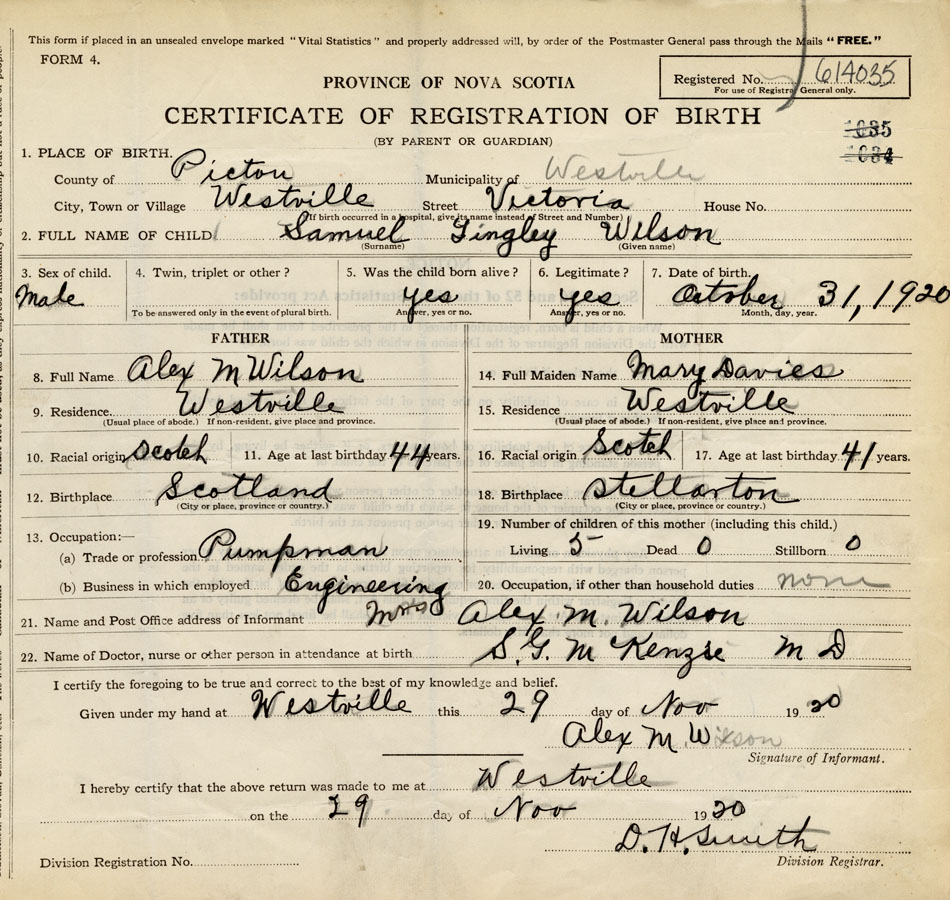 This form if placed in an unsealed envelope marked "Vital Statistics" and properly addressed will, by order of the Postmaster General pass through the Mails "FREE."
FORM 4.
Registered No. 614035
For use of Registrar General only.
PROVINCE OF NOVA SCOTIA
CERTIFICATE OF REGISTRATION OF BIRTH
(BY PARENT OR GUARDIAN)
1035
1034
1. PLACE OF BIRTH.
County of Picton Municipality of Westville
City, Town or Village Westville Street Victoria House No.
(If birth occurred in a hospital, give its name instead of Street and Number)
2. FULL NAME OF CHILD Samuel Tingley Wilson
(Surname) (Given name)
3. Sex of child. 4. Twin, triplet or other? 5. Was the child born alive? 6. Legitimate? 7. Date of birth.
Male yes yes October 31, 1920
To be answered only in the event of plural birth. Answer, yes or no. Answer, yes or no. Month, day, year.
FATHER
8. Full Name Alex M Wilson
9. Residence Westville
(Usual place of abode.) If non-resident, give place and province.
10. Racial origin Scotch 11. Age at last birthday 44 years.
12. Birthplace Scotland
(City or place, province or country.)
13. Occupation:—
(a) Trade or profession Pumpman
(b) Business in which employed Engineering
MOTHER
14. Full Maiden Name Mary Davies
15. Residence Westville
(Usual place of abode.) If non-resident, give place and province.
16. Racial origin Scotch 17. Age at last birthday 41 years.
18. Birthplace Stellarton
(City or place, province or country.)
19. Number of children of this mother (including this child.)
Living 5 Dead 0 Stillborn 0
20. Occupation, if other than household duties none
21. Name and Post Office address of Informant Mrs Alex. M. Wilson
22. Name of Doctor, nurse or other person in attendance at birth S. G. McKenzie M D
I certify the foregoing to be true and correct to the best of my knowledge and belief.
Given under my hand at Westville this 29 day of Nov 1920
Alex M. Wilson
Signature of Informant.
I hereby certify that the above return was made to me at Westville
on the 29 day of Nov 1920
D. H. Smith
Division Registration No. Division Registrar.